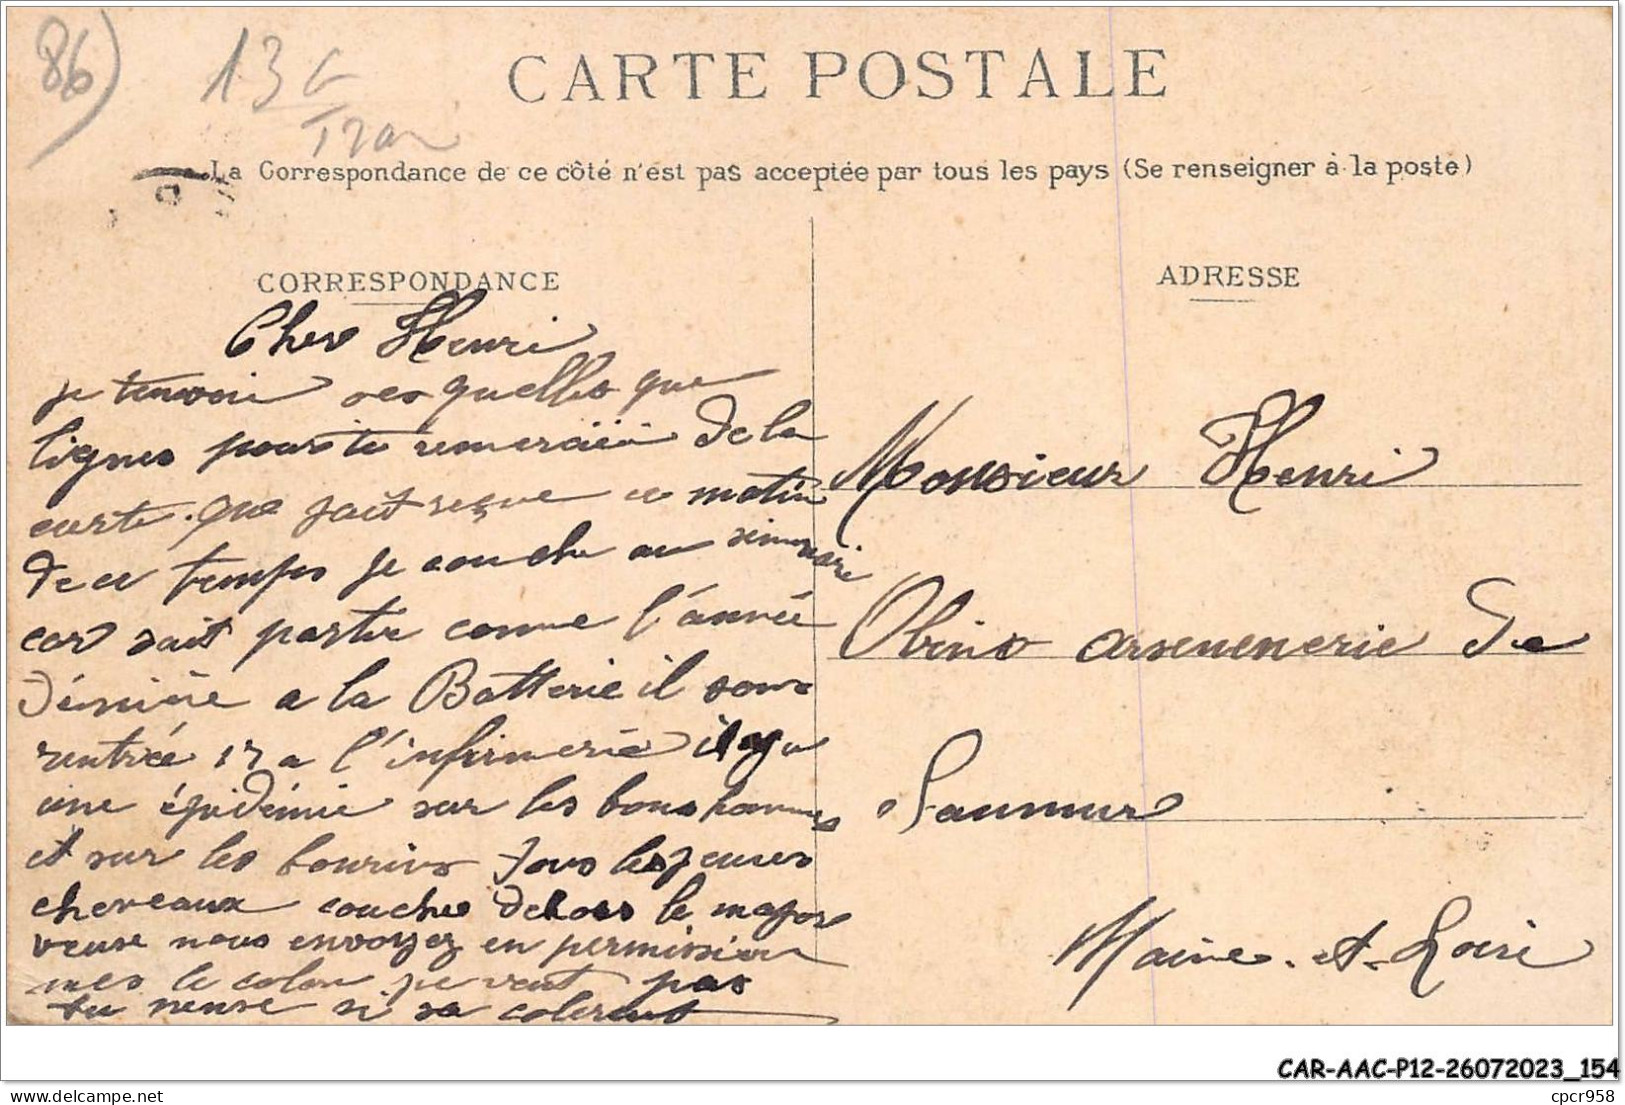 86)
13 G
CARTE POSTALE
La Correspondance de ce côté n'est pas acceptée par tous les pays (Se renseigner à la poste)
CORRESPONDANCE
ADRESSE
Cher Henri
je tenvoie ses quelles que
lignes pour te remercieir de la
carte que jait reçue ce matin
de ce temps je couche au
car sait partie comme l'année
dérnière a la Batterie il sont
rentrée 17 a l'infirmerie il y a
une épidémie sur les bonshommes
et sur les bourins tous les jeunes
cheveaux couche dehors le major
veuse nous envoyez en permission
mes le colon ne veut pas
tu pense si sa colerent
Monsieur Henri
Obino arsenenerie de
Saumur
Maine-et-Loire
CAR-AAC-P12-26072023_154
delcampe.net
cpcr958